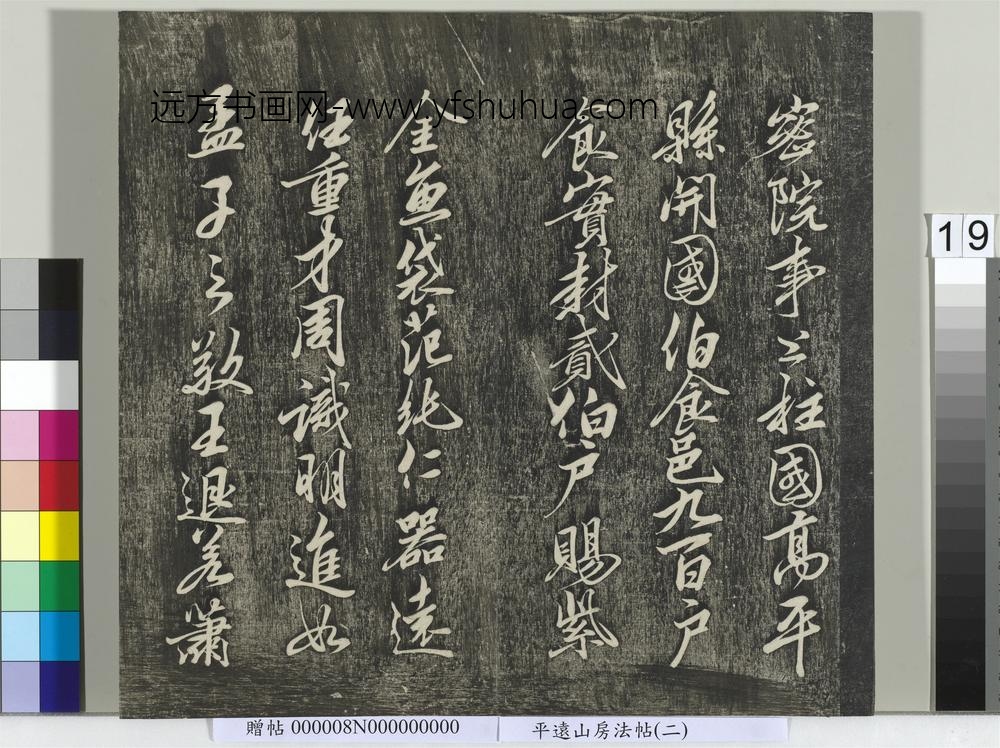 密院事上柱國高平
縣開國伯食邑九百户
食實封貳伯户賜紫
金魚袋范純仁器遠
任重才周識明進如
孟子之敬王退若蕭
远方书画网-www.yfshuhua.com
19
贈帖 000008N000000000
平遠山房法帖(二)